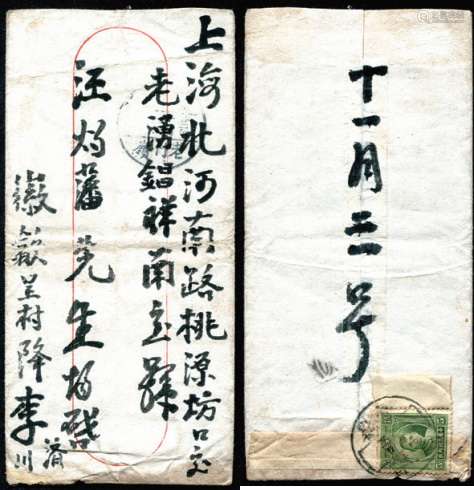 上海北河南路桃源坊口交
老湧錩祥南立
汪灼藩先生均啓
徽 呈村降李
濟川
十一月三号